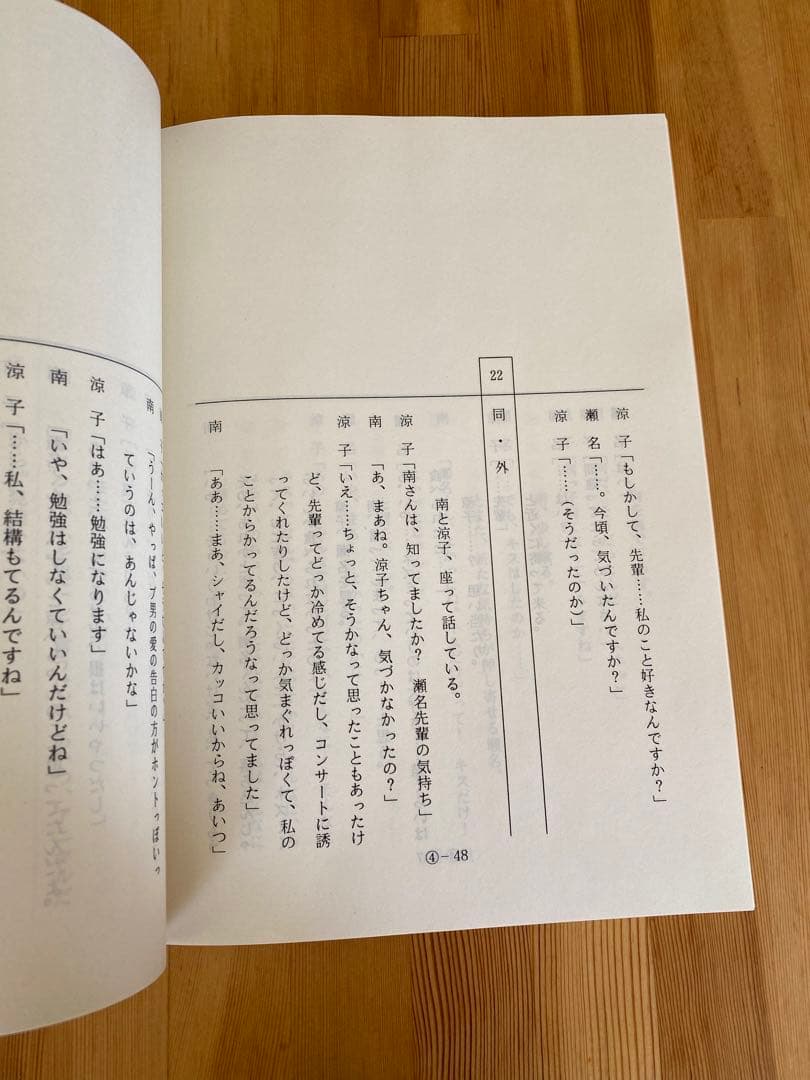 涼子「もしかして、先輩……私のこと好きなんですか？」
瀬名「……。今頃、気づいたんですか？」
涼子「……(そうだったのか)」
22 同・外
南と涼子、座って話している。
涼子「南さんは、知ってましたか？　瀬名先輩の気持ち」
南「あ、まあね。涼子ちゃん、気づかなかったの？」
涼子「いえ……ちょっと、そうかなって思ったこともあったけ
ど、先輩ってどっか冷めてる感じだし、コンサートに誘
ってくれたりしたけど、どっか気まぐれっぽくて、私の
ことからかってるんだろうなって思ってました」
南「ああ……まあ、シャイだし、カッコいいからね、あいつ」
④-48
南「うーん、やっぱ、ブ男の愛の告白の方がホントっぽいっ
ていうのは、あんじゃないかな」
涼子「はあ……勉強になります」
南「いや、勉強はしなくていいんだけどね」
涼子「……私、結構もてるんですね」